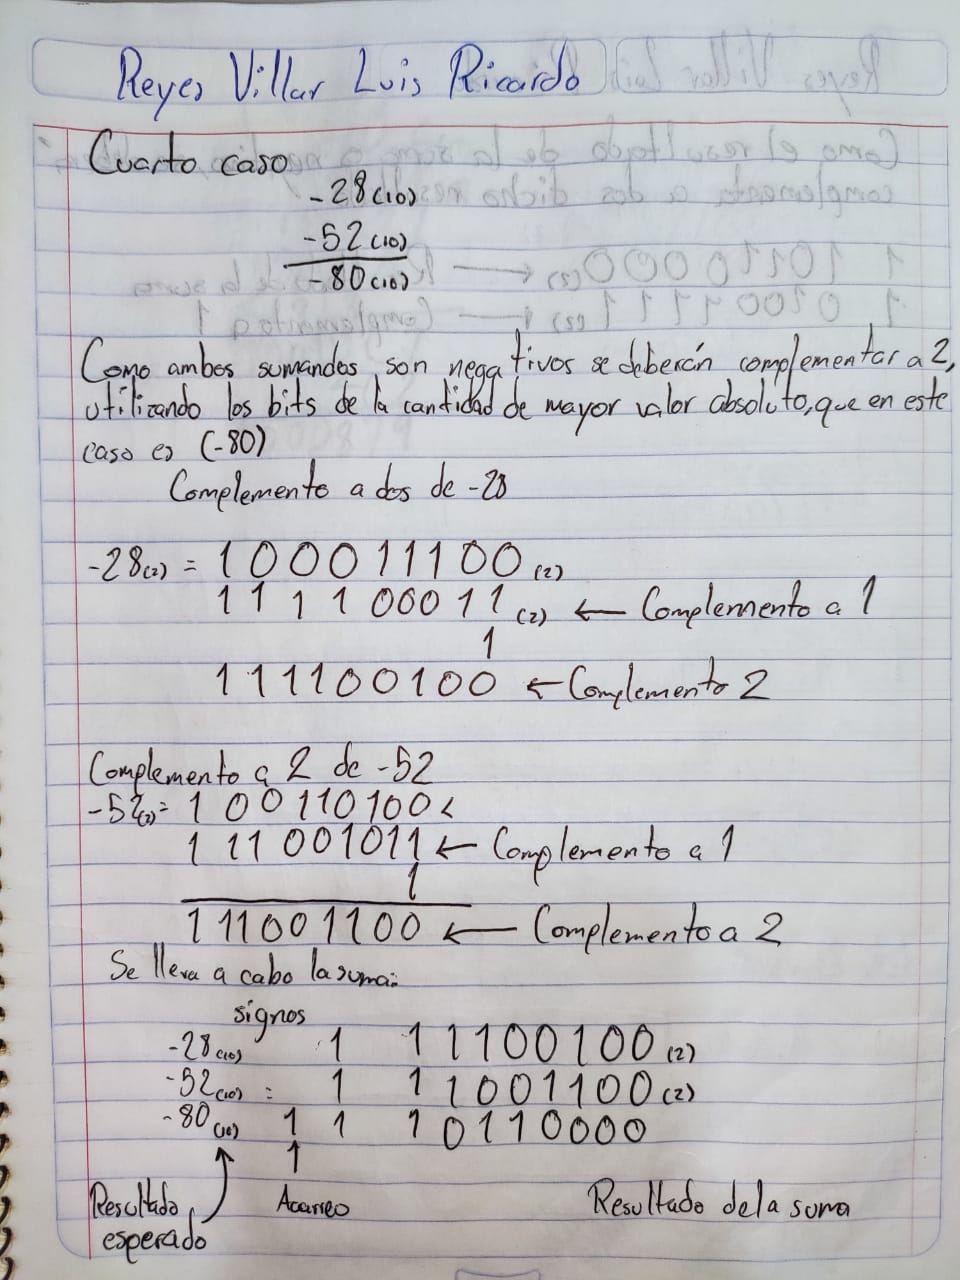 Reyes Villar Luis Ricardo
Cuarto caso
-28(10)
-52(10)
-80(10)
Como ambos sumandos son negativos se deberán complementar a 2,
utilizando los bits de la cantidad de mayor valor absoluto, que en este
caso es (-80)
Complemento a dos de -28
-28(2) = 100011100(2)
111100011(2) ← Complemento a 1
1
111100100 ← Complemento 2
Complemento a 2 de -52
-52(2)= 100110100
111001011 ← Complemento a 1
1
111001100 ← Complemento a 2
Se lleva a cabo la suma:
signos
-28(10) 1 11100100(2)
-52(10) = 1 11001100(2)
-80(10) 1 1 10110000
Resultado esperado
Acarreo
Resultado de la suma